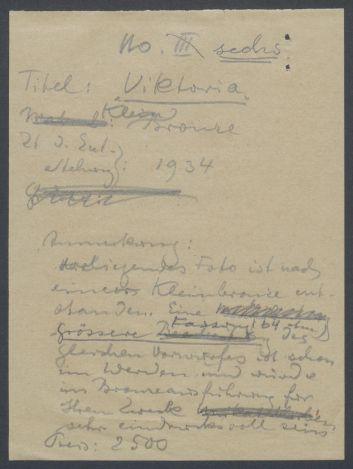 No. III sechs
Titel: Viktoria
Klein
Bronze
Zt d. Ent-
stehung: 1934
Anmerkung:
vorliegendes Foto ist nach
einer Kleinbronze ent-
standen. Eine
grössere Fassung des
gleichen Vorwurfes ist schon
im Werden und würde
in Bronzeausführung für
Ihren Zweck
sehr eindrucksvoll sein.
Preis: 2500